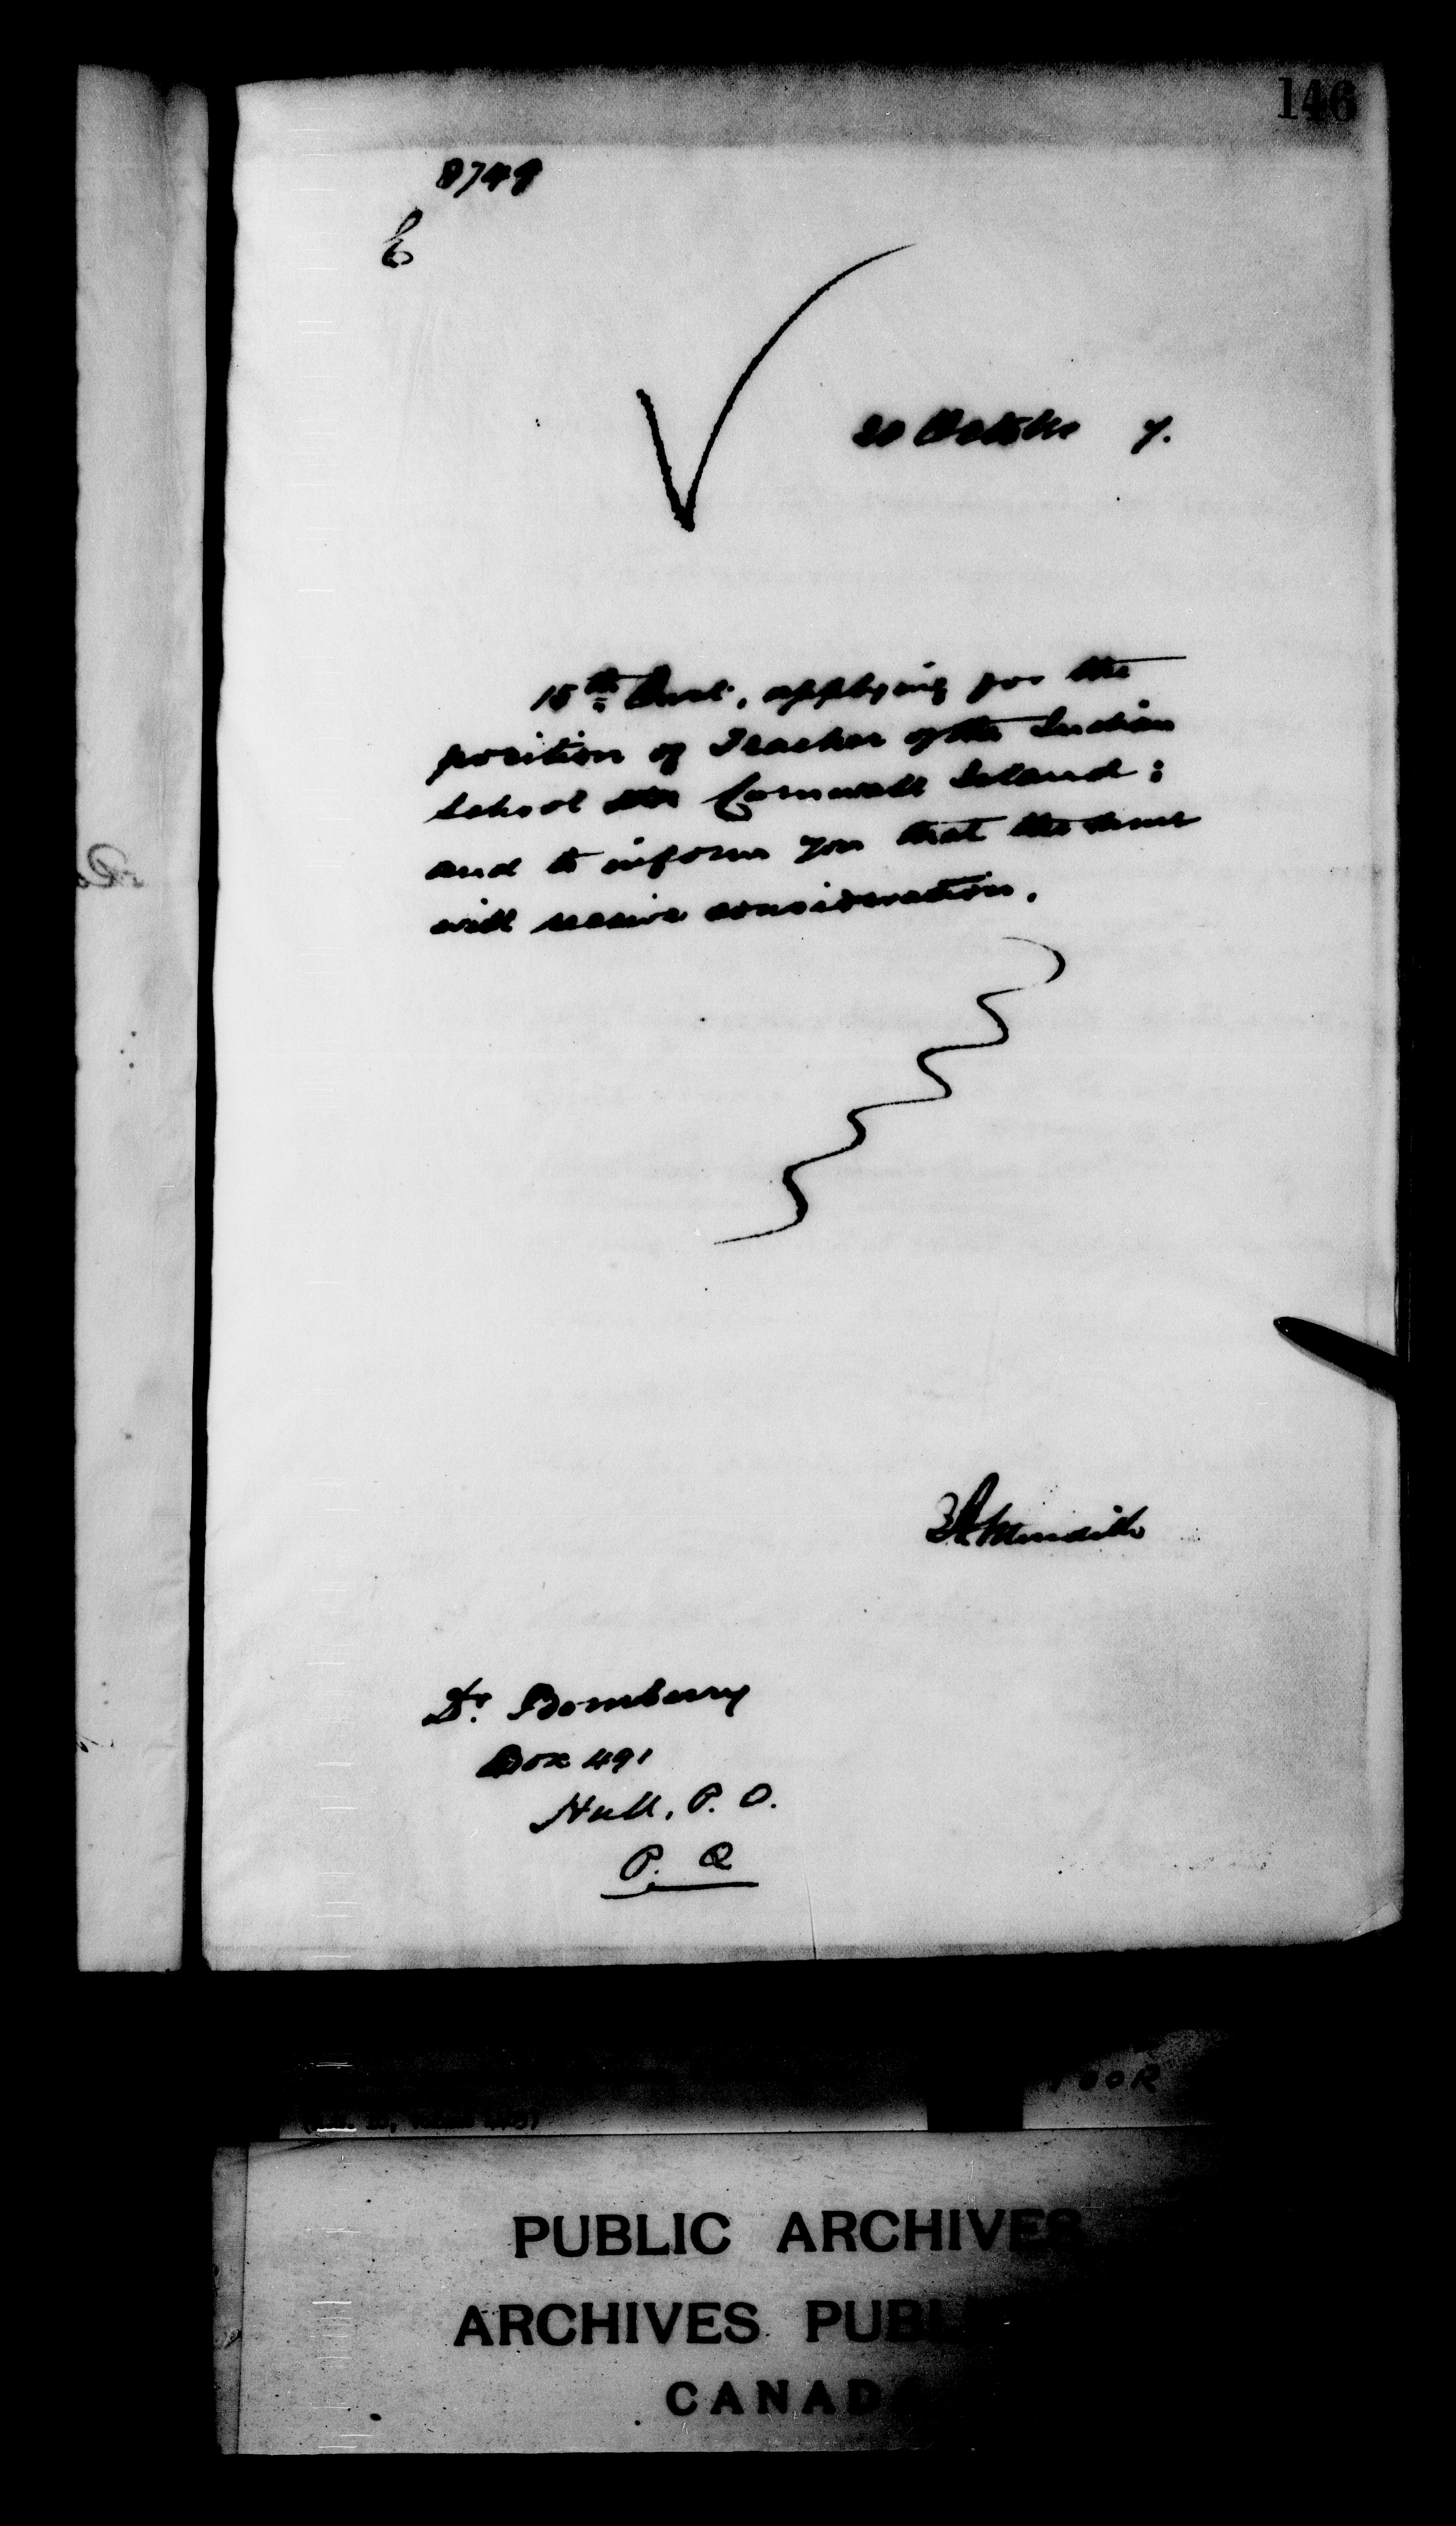 146
8749
E
20 October 7.
15th Inst., applying for the
position of Teacher of the Indian
School on Cornwall Island;
and to inform you that the same
will receive consideration.
Dr. Bomberry
Box 491
Hull, P. O.
P. Q
POOR
PUBLIC ARCHIVES
ARCHIVES PUBLI
CANADA